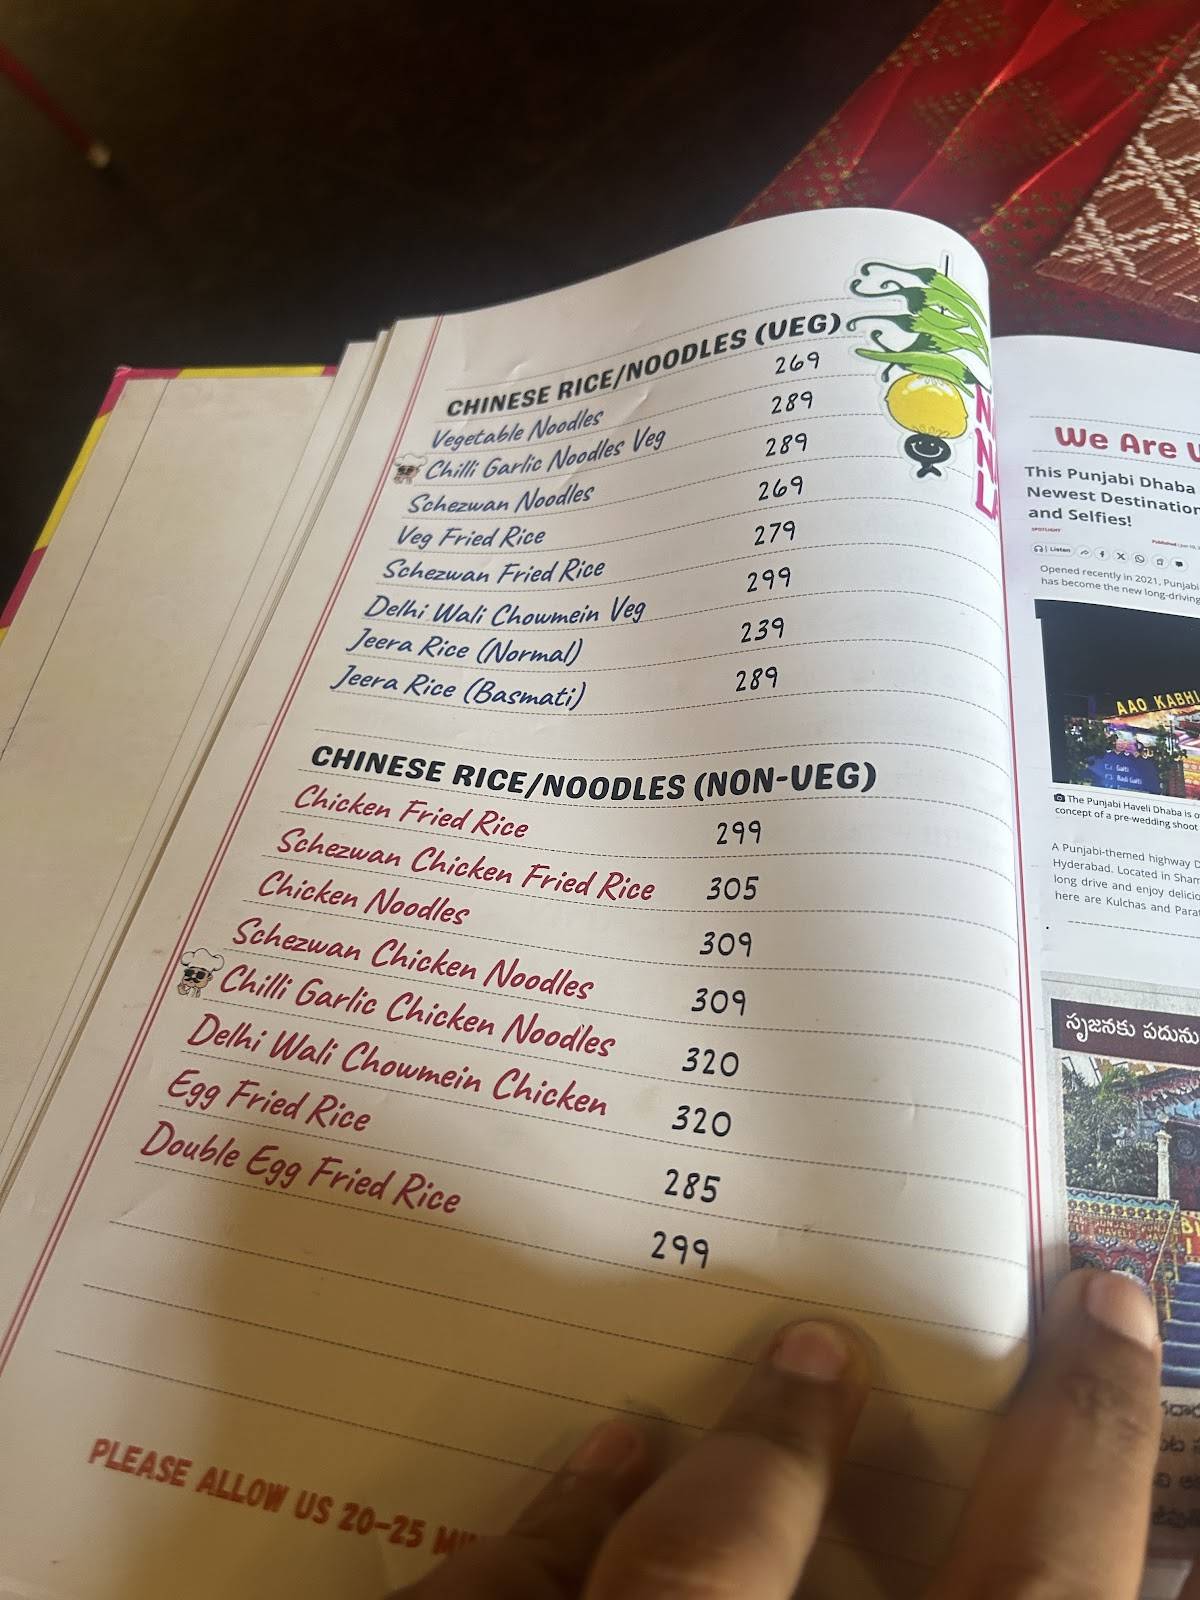 CHINESE RICE/NOODLES (VEG)
Vegetable Noodles 269
Chilli Garlic Noodles Veg 289
Schezwan Noodles 289
Veg Fried Rice 269
Schezwan Fried Rice 279
Delhi Wali Chowmein Veg 299
Jeera Rice (Normal) 239
Jeera Rice (Basmati) 289
CHINESE RICE/NOODLES (NON-VEG)
Chicken Fried Rice 299
Schezwan Chicken Fried Rice 305
Chicken Noodles 309
Schezwan Chicken Noodles 309
Chilli Garlic Chicken Noodles 320
Delhi Wali Chowmein Chicken 320
Egg Fried Rice 285
Double Egg Fried Rice 299
PLEASE ALLOW US 20-25
We Are
This Punjabi Dhaba
Newest Destination
and Selfies!
SPOTLIGHT
Listen
Opened recently in 2021, Punjabi
has become the new long-driving
AAO KABHI
The Punjabi Haveli Dhaba is
concept of a pre-wedding shoot
A Punjabi-themed highway
Hyderabad. Located in
long drive and enjoy
here are Kulchas and
సృజనకు పదును